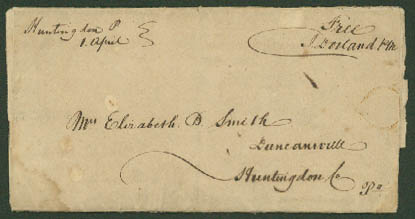 Huntingdon P
1. April
Free
J Dorland PM
Mrs Elizabeth. D. Smith
Duncansville
Huntingdon Co
Pa